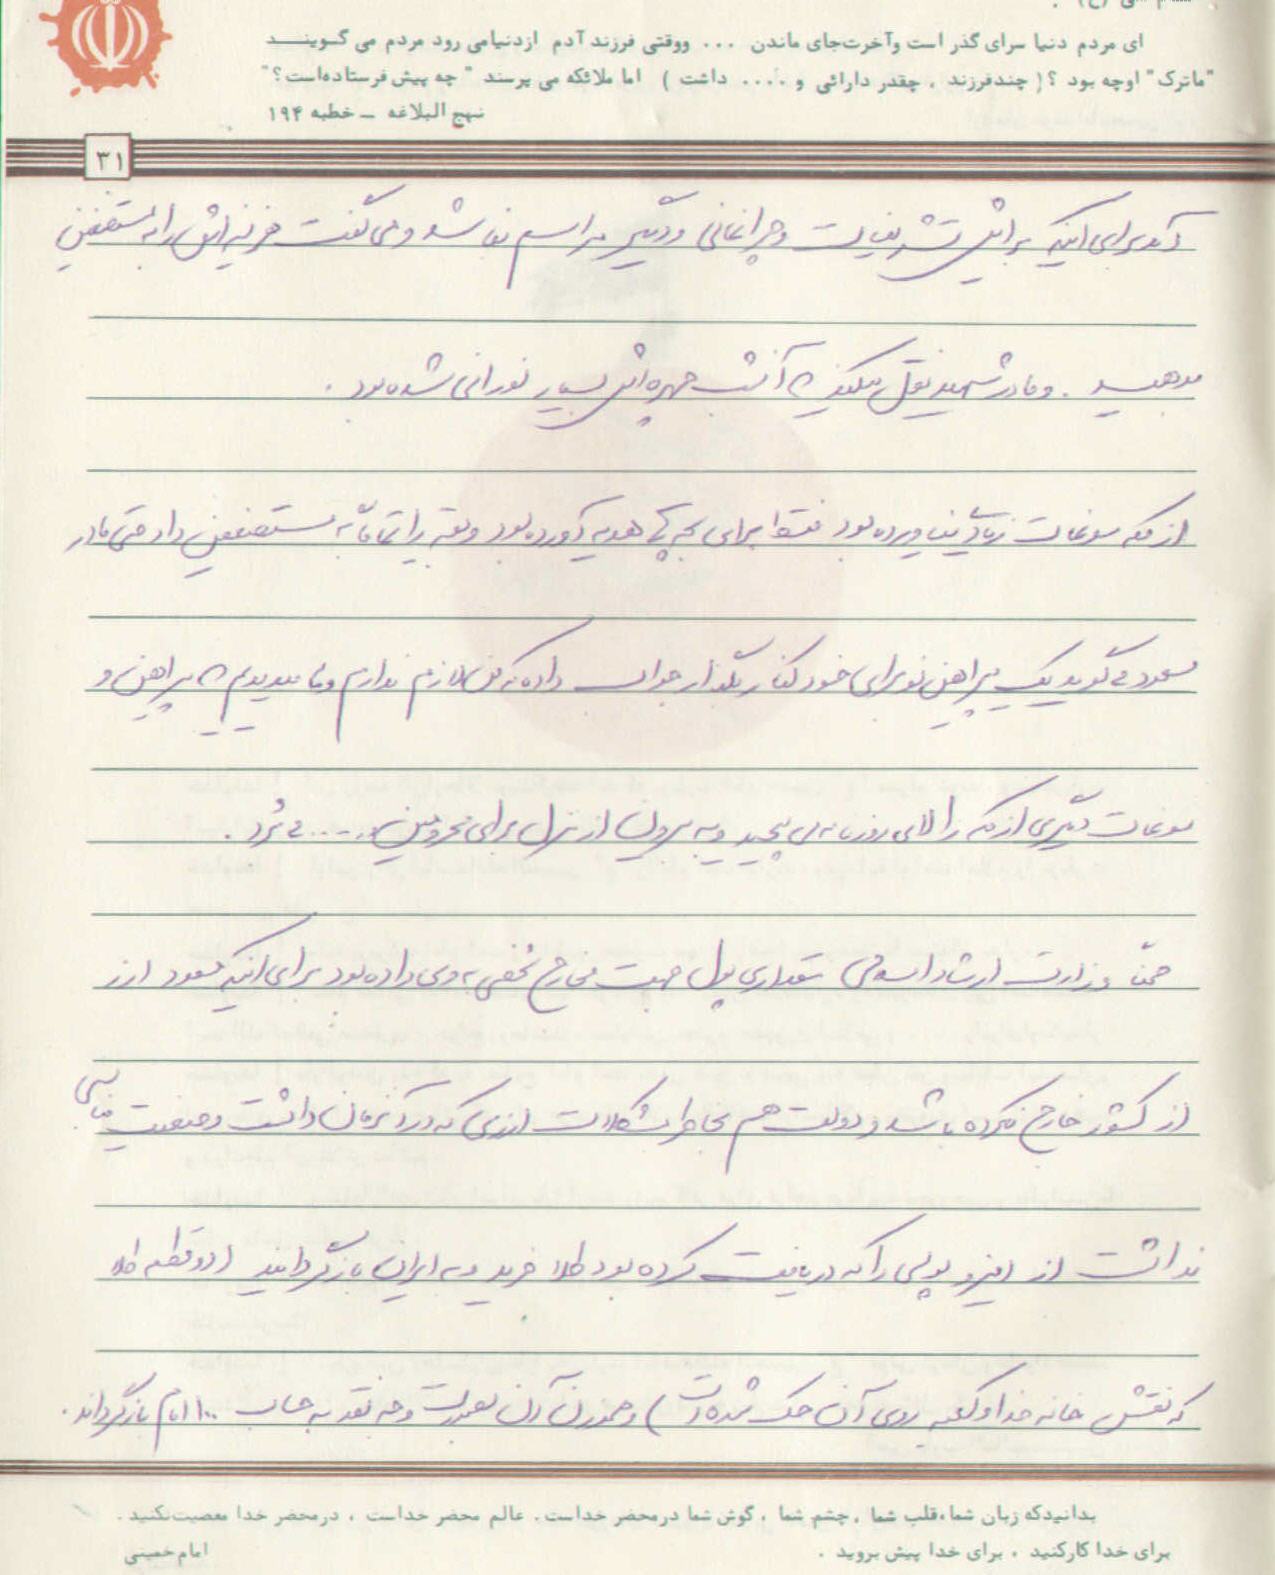 ای مردم دنیا سرای گذر است وآخرت‌جای ماندن ... ووقتی فرزند آدم ازدنیامی رود مردم می گـویینـــد
"ماترک" اوچه بود ؟ ( چندفرزند ، چقدر دارائی و .... داشت ) اما ملائکه می پرسند " چه پیش فرستاده‌است؟"
نهج البلاغه ــ خطبه ۱۹۴
۳۱
آمد برای اینکه برایش تشریفات و چراغانی و دیگر مراسم نباشد و می گفت هزینه اش را به مستضعفین
بدهید . و مادر شهید نقل میکند که آنشب چهره اش بسیار نورانی شده بود .
از مکه سوغات زیادی نیاورده بود فقط برای بچه ها هدیه آورده بود و بقیه را تماماً به مستضعفین داد حتی مادر
مسعود می گوید یک پیراهن نو برای خود کنار بگذار جواب داده که من لازم ندارم و ما میدیدیم که پیراهن و
سوغات دیگری از مکه را لای روزنامه می پیچید و به بیرون از منزل برای محرومین .... می بُرد .
ضمناً وزارت ارشاد اسلامی مقداری پول جهت مخارج شخصی به وی داده بود برای اینکه مسعود ارز
از کشور خارج نکرده باشد و دولت هم بخاطر مشکلات ارزی که در آنزمان داشت وضعیت مناسبی
نداشت از اینرو پولی را که دریافت کرده بود طلا خرید و به ایران بازگردانید ( دو قطعه طلا
که نقش خانه خدا و کعبه روی آن حک شده است ) و هموزن آن بصورت وجه نقد به حساب ۱۰۰ امام بازگرداند .
بدانیدکه زبان شما،قلب شما ، چشم شما ، گوش شما درمحضر خداست . عالم محضر خداست ، درمحضر خدا معصیت‌نکنید .
برای خدا کارکنید ، برای خدا پیش بروید .
امام‌خمینی